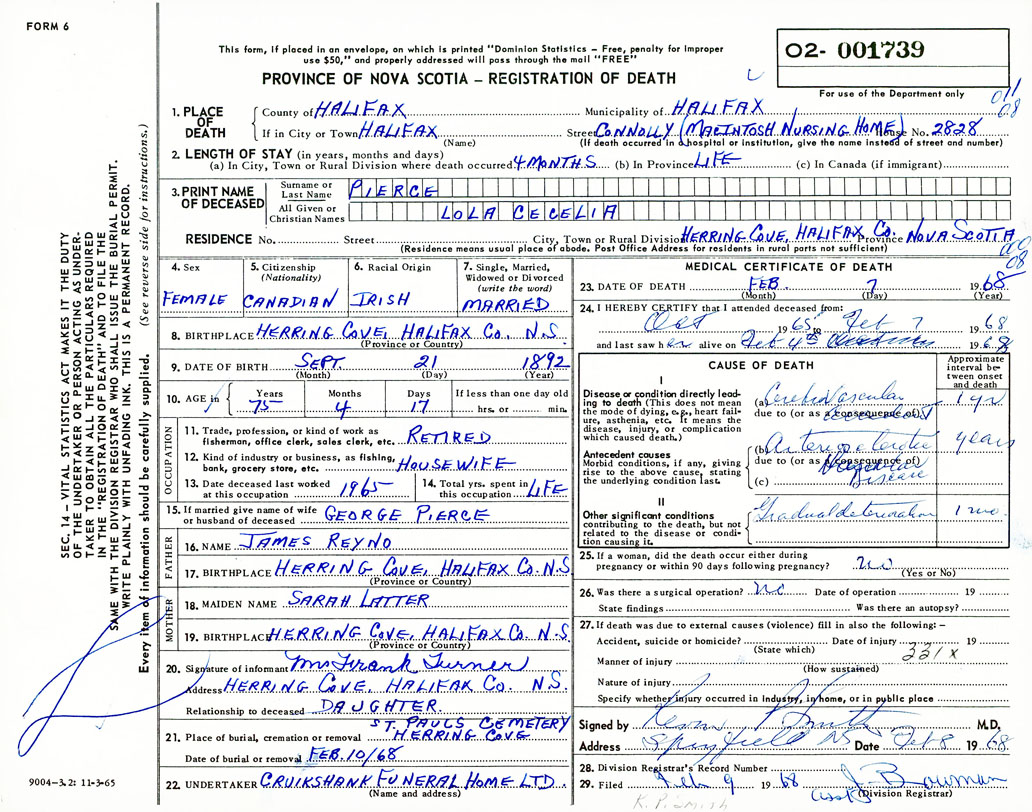 FORM 6
This form, if placed in an envelope, on which is printed "Dominion Statistics – Free, penalty for improper
use $50," and properly addressed will pass through the mail "FREE"
PROVINCE OF NOVA SCOTIA – REGISTRATION OF DEATH
02- 001739
For use of the Department only
1. PLACE OF DEATH
County of HALIFAX Municipality of HALIFAX
If in City or Town HALIFAX Street CONNOLLY (MACINTOSH NURSING HOME) House No. 2828
(Name) (If death occurred in a hospital or institution, give the name instead of street and number)
2. LENGTH OF STAY (in years, months and days)
(a) In City, Town or Rural Division where death occurred 4 MONTHS (b) In Province LIFE (c) In Canada (if immigrant)
3. PRINT NAME OF DECEASED
Surname or Last Name PIERCE
All Given or Christian Names LOLA CECELIA
RESIDENCE No. Street City, Town or Rural Division HERRING COVE, HALIFAX CO. Province NOVA SCOTIA
(Residence means usual place of abode. Post Office Address for residents in rural parts not sufficient)
4. Sex FEMALE
5. Citizenship (Nationality) CANADIAN
6. Racial Origin IRISH
7. Single, Married, Widowed or Divorced (write the word) MARRIED
8. BIRTHPLACE HERRING COVE, HALIFAX CO., N.S.
(Province or Country)
9. DATE OF BIRTH SEPT. 21 1892
(Month) (Day) (Year)
10. AGE in Years 75 Months 4 Days 17 If less than one day old hrs. or min.
OCCUPATION
11. Trade, profession, or kind of work as fisherman, office clerk, sales clerk, etc. RETIRED
12. Kind of industry or business, as fishing, bank, grocery store, etc. HOUSEWIFE
13. Date deceased last worked at this occupation 1965
14. Total yrs. spent in this occupation LIFE
15. If married give name of wife or husband of deceased GEORGE PIERCE
FATHER
16. NAME JAMES REYNO
17. BIRTHPLACE HERRING COVE, HALIFAX CO. N.S.
(Province or Country)
MOTHER
18. MAIDEN NAME SARAH LATTER
19. BIRTHPLACE HERRING COVE, HALIFAX CO. N.S.
(Province or Country)
20. Signature of informant Mrs Frank Turner
Address HERRING COVE, HALIFAX CO. N.S.
Relationship to deceased DAUGHTER
21. Place of burial, cremation or removal ST. PAULS CEMETERY HERRING COVE
Date of burial or removal FEB. 10/68
22. UNDERTAKER CRUIKSHANK FUNERAL HOME LTD.
(Name and address)
MEDICAL CERTIFICATE OF DEATH
23. DATE OF DEATH FEB. 7 1968
(Month) (Day) (Year)
24. I HEREBY CERTIFY that I attended deceased from:
Oct 1965 to Feb 7 1968
and last saw her alive on Feb 4th 1968
CAUSE OF DEATH
Approximate interval between onset and death
I
Disease or condition directly leading to death (This does not mean the mode of dying, e.g., heart failure, asthenia, etc. It means the disease, injury, or complication which caused death.)
(a) Cerebrovascular 1 yr
due to (or as a consequence of)
Antecedent causes
Morbid conditions, if any, giving rise to the above cause, stating the underlying condition last.
(b) years
due to (or as a consequence of)
(c) Disease
II
Other significant conditions contributing to the death, but not related to the disease or condition causing it.
Gradual deterioration 1 mo.
25. If a woman, did the death occur either during pregnancy or within 90 days following pregnancy? no
(Yes or No)
26. Was there a surgical operation? no Date of operation 19
State findings Was there an autopsy?
27. If death was due to external causes (violence) fill in also the following: –
Accident, suicide or homicide? Date of injury 19
(State which) 331 x
Manner of injury
(How sustained)
Nature of injury
Specify whether injury occurred in industry, in home, or in public place
Signed by Smith M.D.
Address Spryfield NS Date Feb 8 1968
28. Division Registrar's Record Number
29. Filed Feb 9 1968 J. Bowman
(Asst) (Division Registrar)
K. P. Smith
SEC. 14 – VITAL STATISTICS ACT MAKES IT THE DUTY
OF THE UNDERTAKER OR PERSON ACTING AS UNDER-
TAKER TO OBTAIN ALL THE PARTICULARS REQUIRED
IN THE "REGISTRATION OF DEATH" AND TO FILE THE
SAME WITH THE DIVISION REGISTRAR WHO SHALL ISSUE THE BURIAL PERMIT.
WRITE PLAINLY WITH UNFADING INK. THIS IS A PERMANENT RECORD.
Every item of information should be carefully supplied. (See reverse side for instructions.)
9004-3.2: 11-3-65